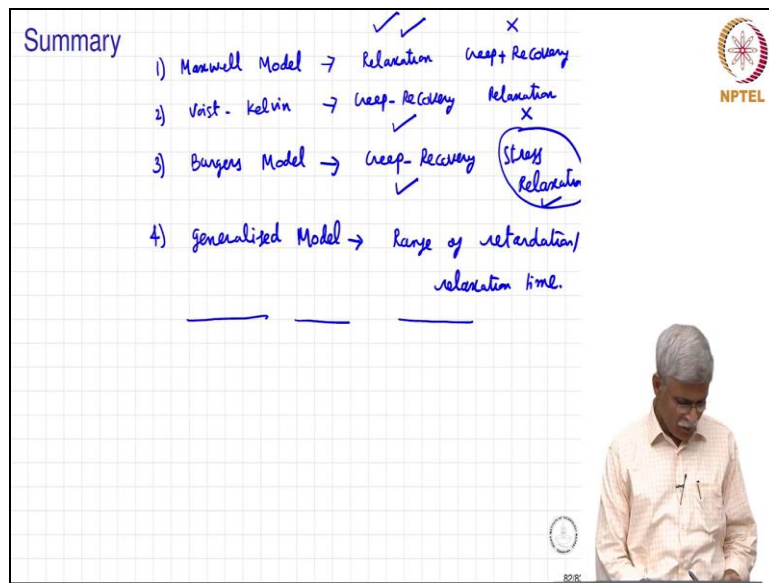 Summary
NPTEL
✓ ✓ ×
1) Maxwell Model → Relaxation Creep + Recovery
2) Voist - Kelvin → Creep - Recovery Relaxation
✓ ×
3) Burgers Model → Creep - Recovery Stress
✓ Relaxation
✓
4) Generalised Model → Range of retardation/
relaxation time.
82/82